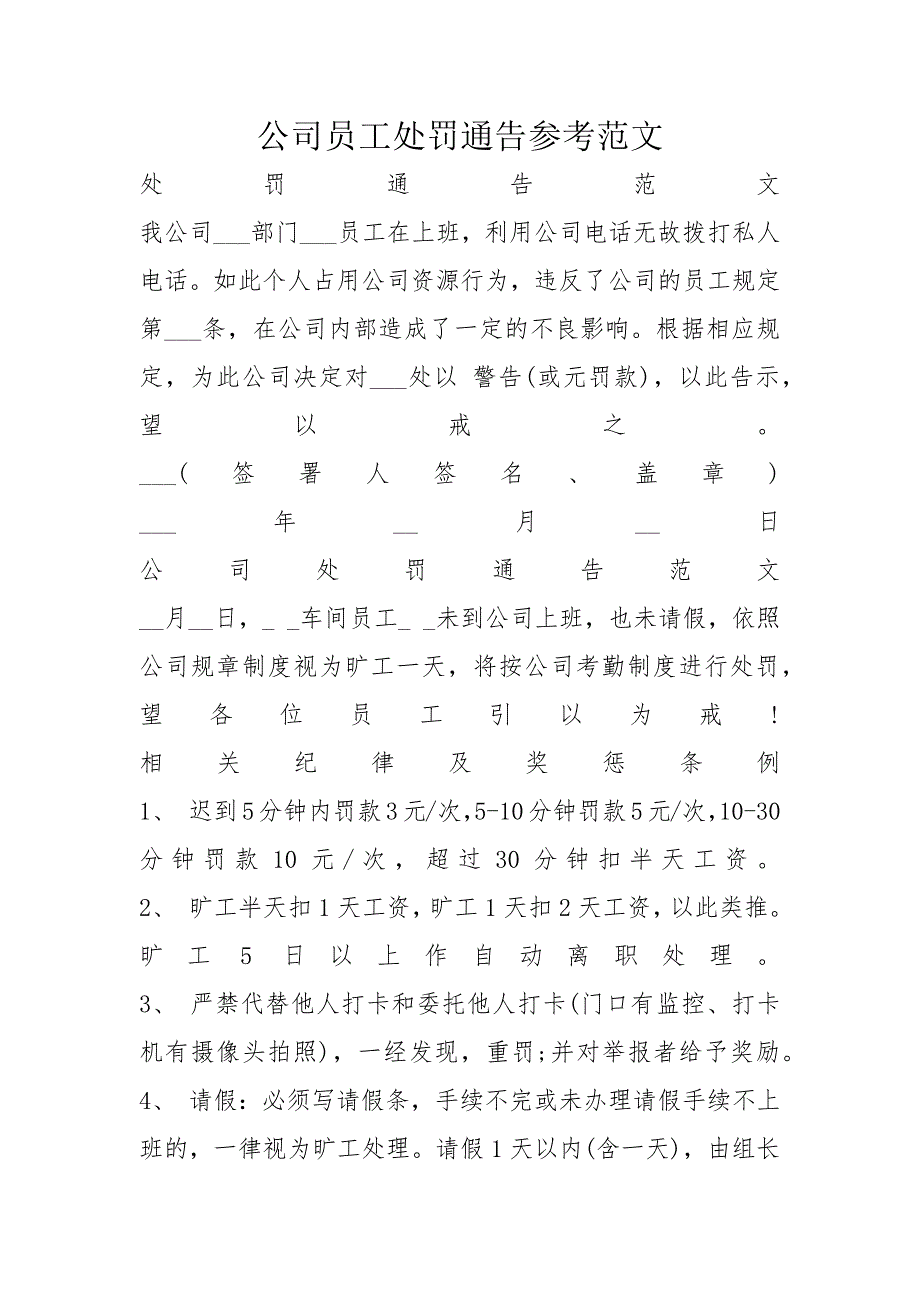 公司员工处罚通告参考范文
处罚通告范文
我公司___部门___员工在上班，利用公司电话无故拨打私人
电话。如此个人占用公司资源行为，违反了公司的员工规定
第___条，在公司内部造成了一定的不良影响。根据相应规
定，为此公司决定对___处以 警告(或元罚款)，以此告示，
望以戒之。
___(签署人签名、盖章)
___年__月__日
公司处罚通告范文
__月__日，_ _车间员工_ _未到公司上班，也未请假，依照
公司规章制度视为旷工一天，将按公司考勤制度进行处罚，
望各位员工引以为戒!
相关纪律及奖惩条例
1、 迟到5分钟内罚款3元/次,5-10分钟罚款5元/次,10-30
分钟罚款10元/次，超过30分钟扣半天工资。
2、 旷工半天扣1天工资,旷工1天扣2天工资,以此类推。
旷工5日以上作自动离职处理。
3、 严禁代替他人打卡和委托他人打卡(门口有监控、打卡
机有摄像头拍照)，一经发现，重罚;并对举报者给予奖励。
4、 请假：必须写请假条，手续不完或未办理请假手续不上
班的，一律视为旷工处理。请假1天以内(含一天)，由组长